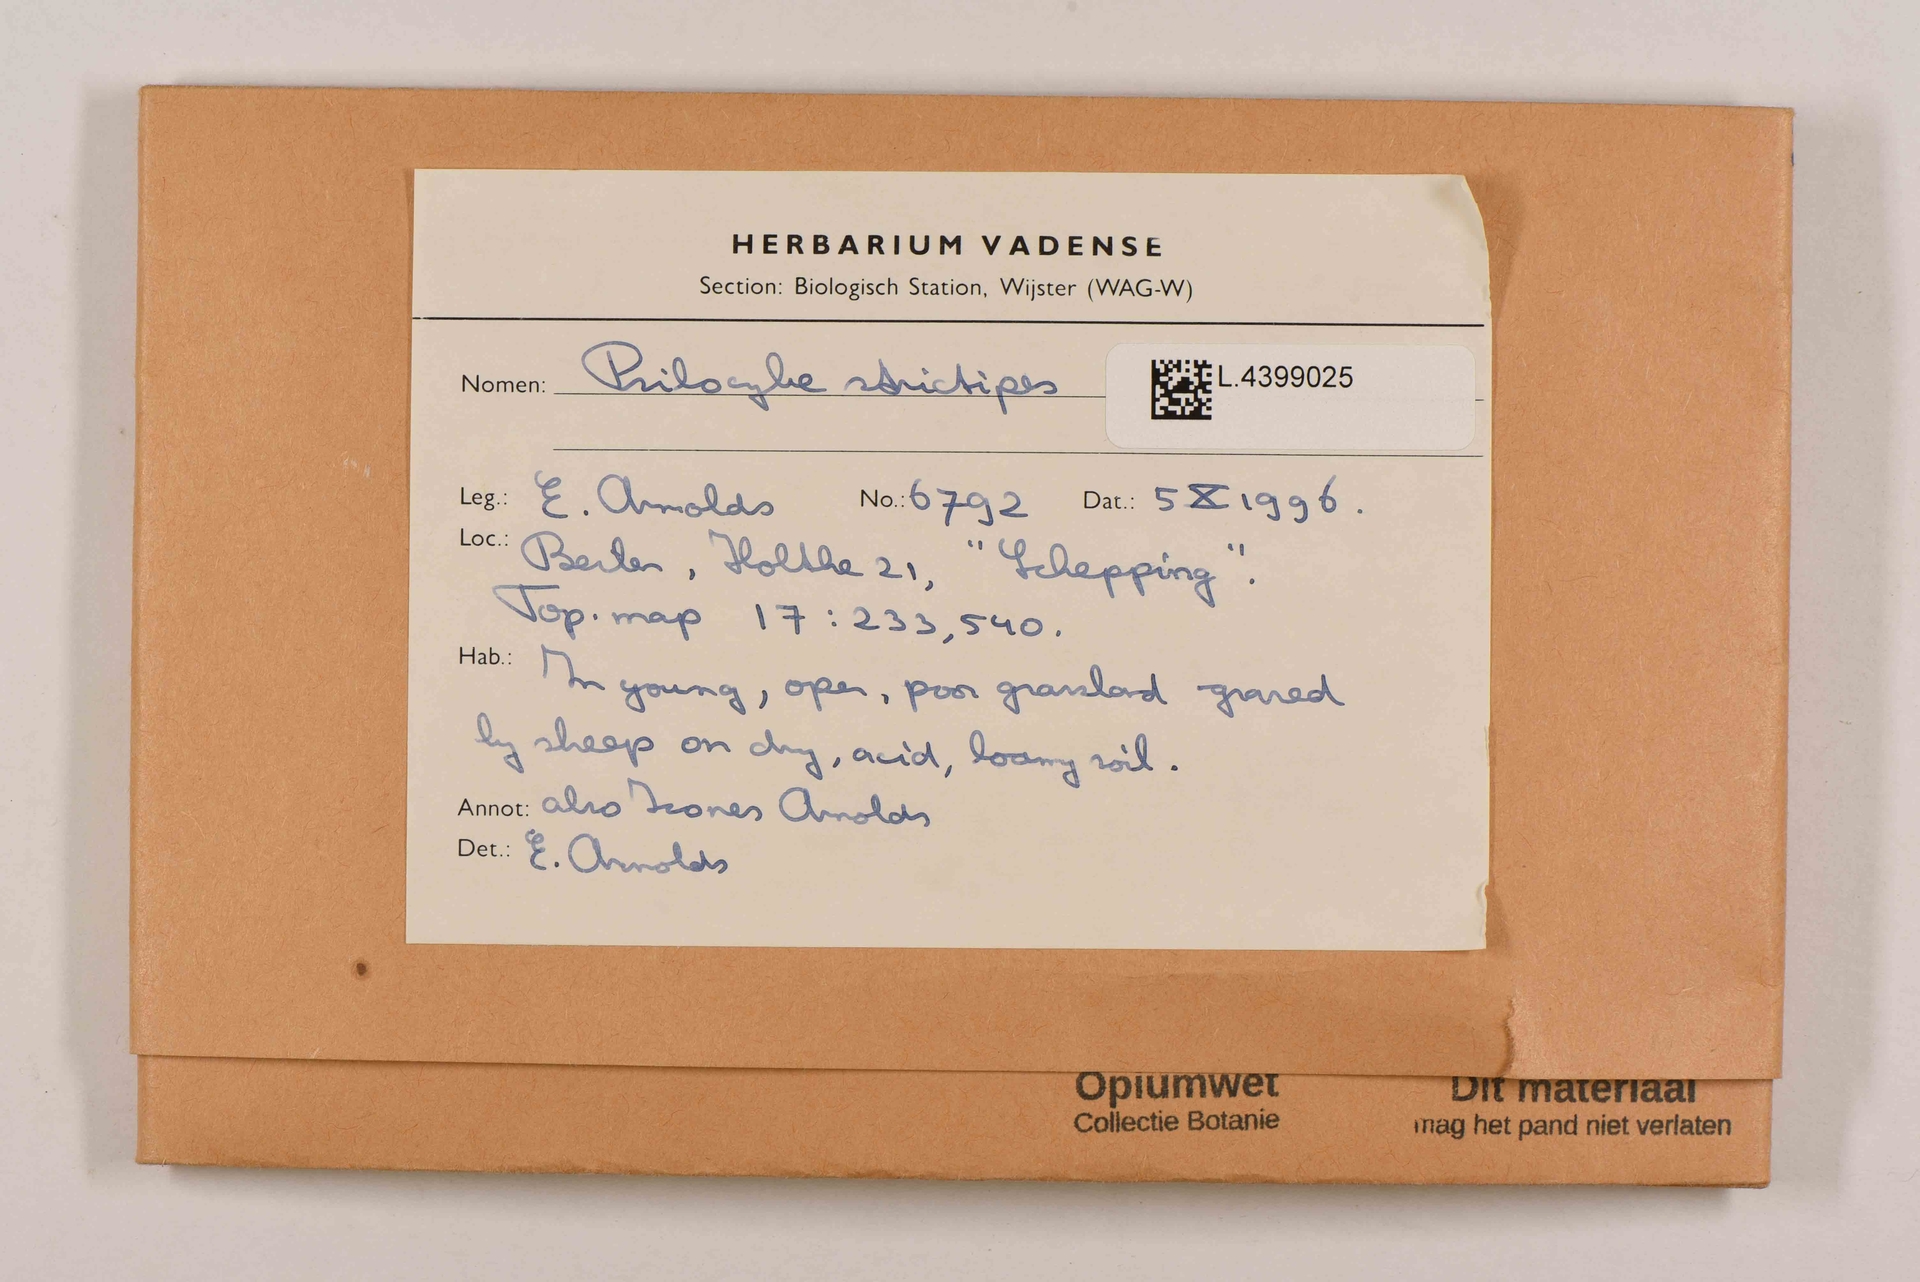 HERBARIUM VADENSE
Section: Biologisch Station, Wijster (WAG-W)
Nomen: Psilocybe strictipes
L.4399025
Leg.: E. Arnolds No.: 6792 Dat.: 5 X 1996.
Loc.: Beilen, Holthe 21, "Schepping".
Top. map 17 : 233,540.
Hab.: In young, open, poor grassland grazed
by sheep on dry, acid, loamy soil.
Annot: also Icones Arnolds
Det.: E. Arnolds
Opiumwet Dit materiaal
Collectie Botanie mag het pand niet verlaten